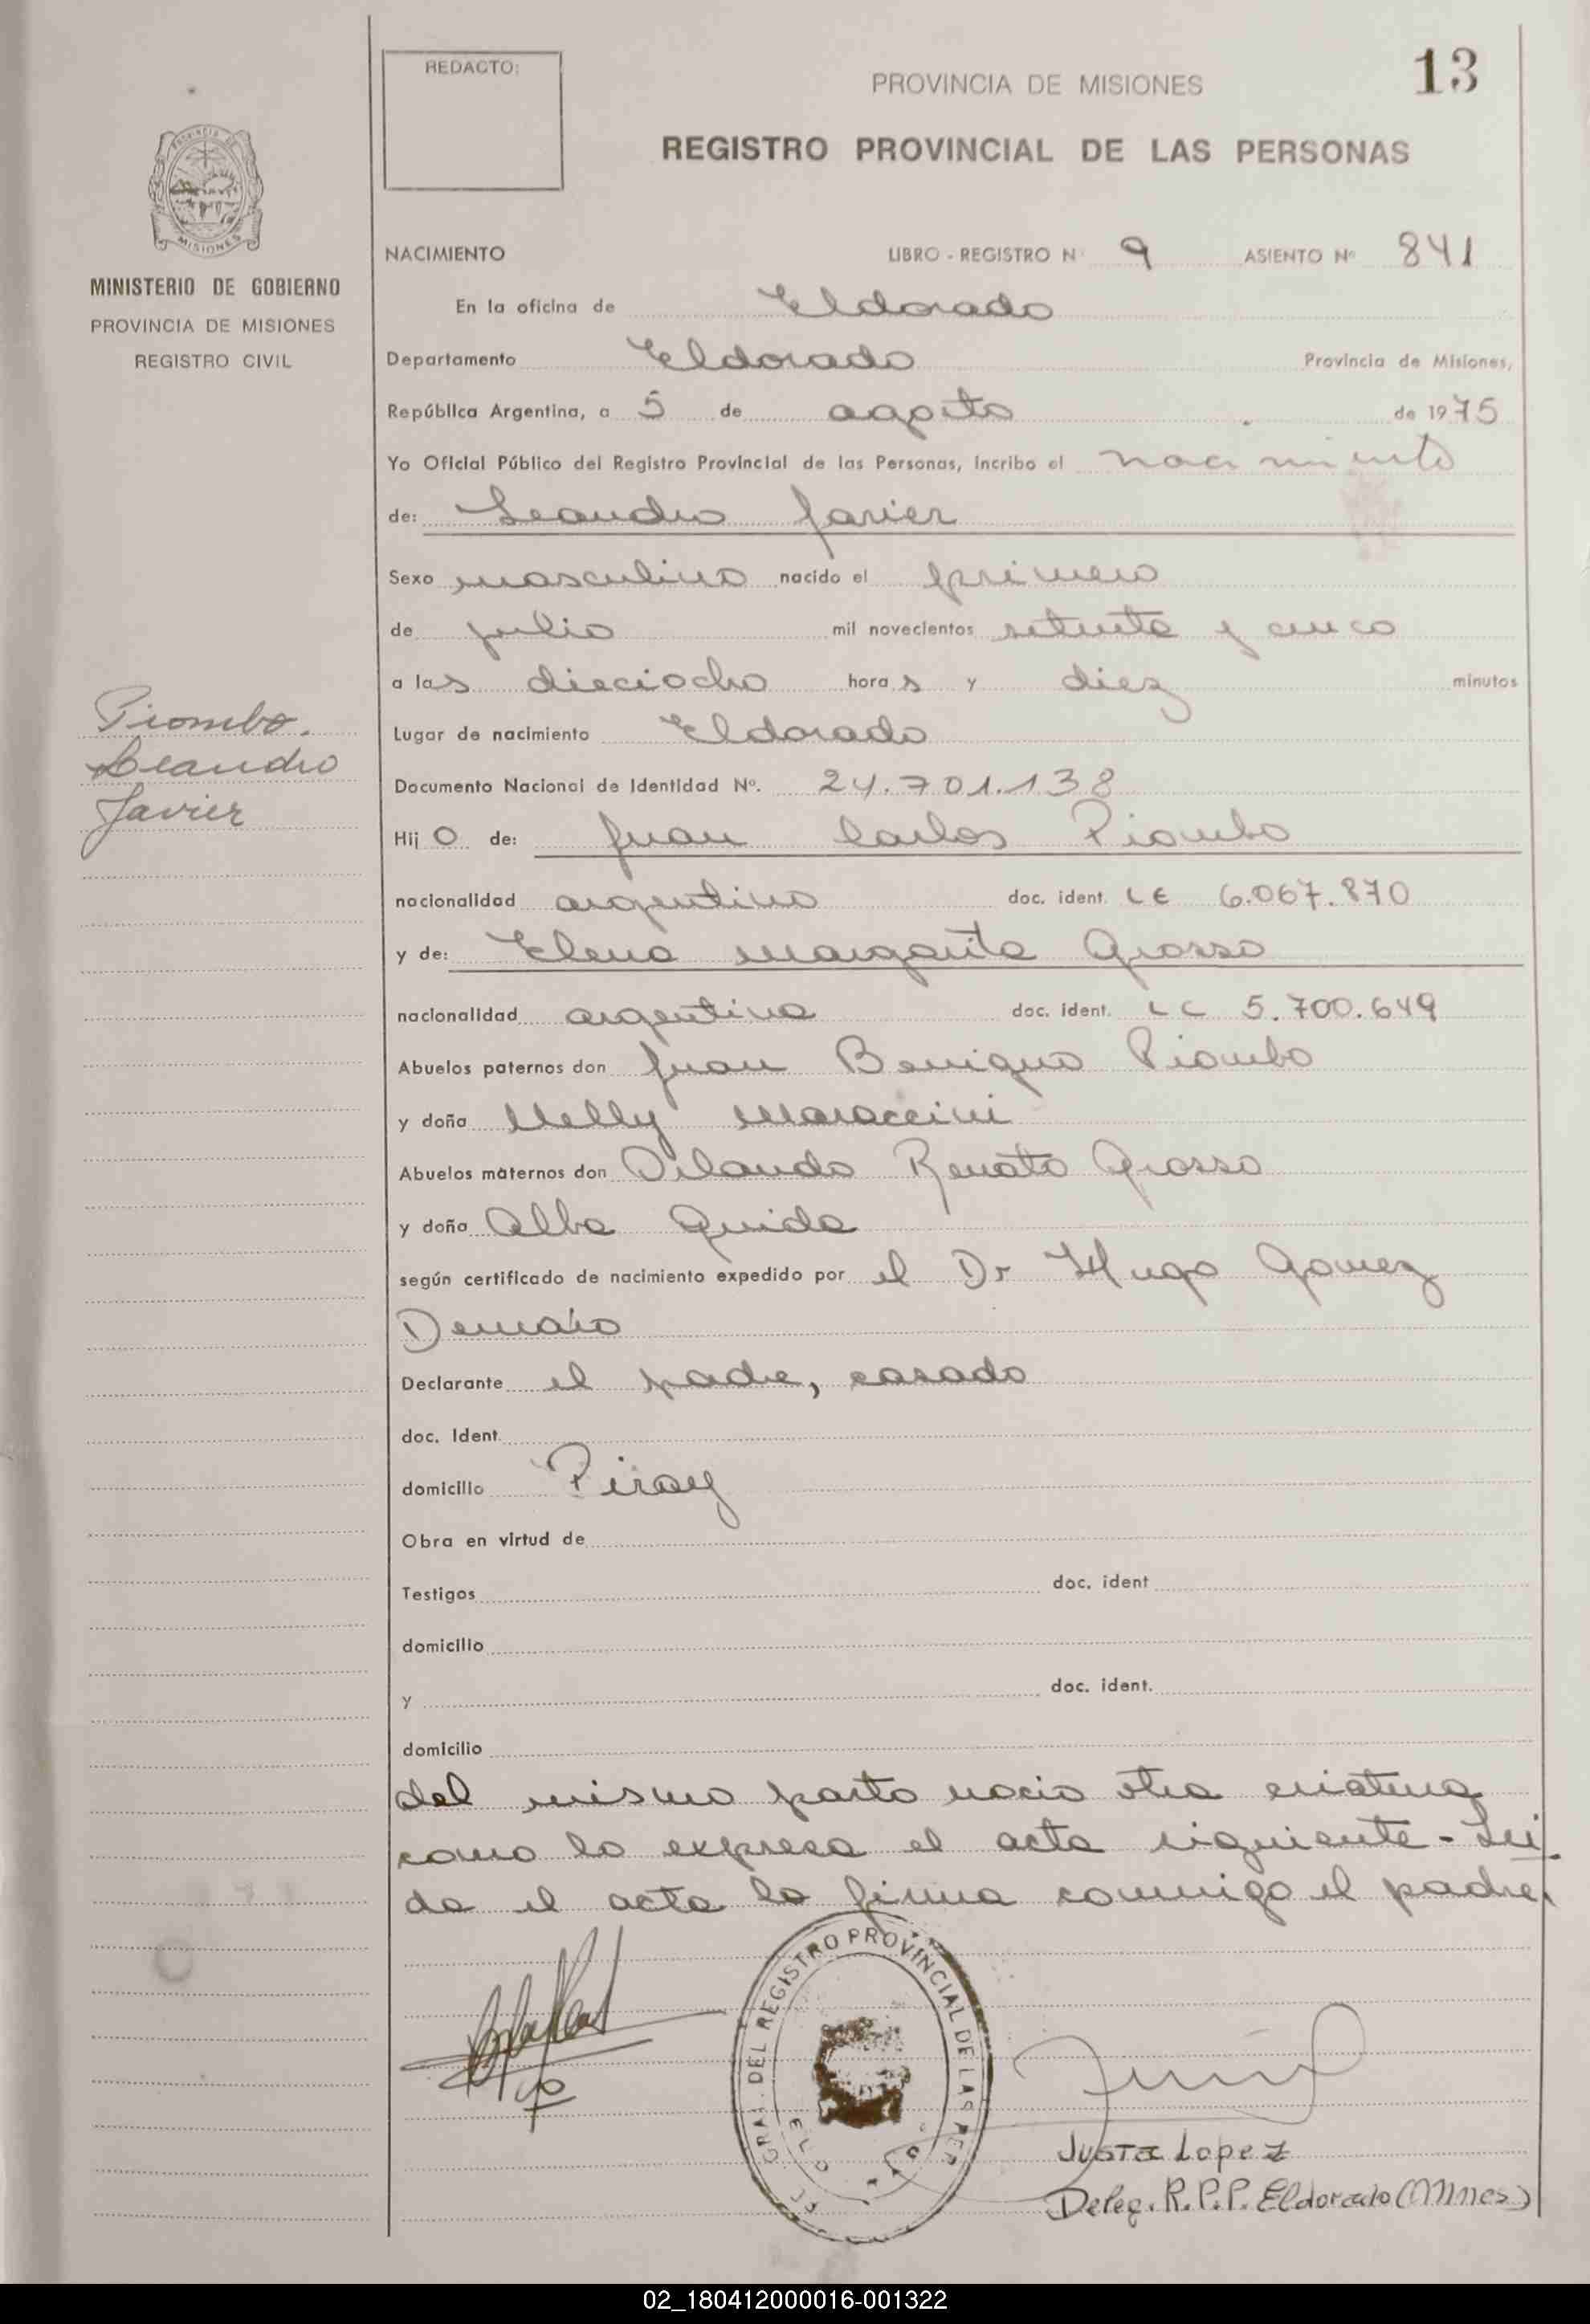 REDACTO:
PROVINCIA DE MISIONES
13
REGISTRO PROVINCIAL DE LAS PERSONAS
PROVINCIA DE
MISIONES
MINISTERIO DE GOBIERNO
PROVINCIA DE MISIONES
REGISTRO CIVIL
NACIMIENTO LIBRO - REGISTRO Nº 9 ASIENTO Nº 841
En la oficina de Eldorado
Departamento Eldorado Provincia de Misiones,
República Argentina, a 5 de agosto de 1975
Yo Oficial Público del Registro Provincial de las Personas, incribo el nacimiento
de: Leandro Javier
Sexo masculino nacido el primero
de julio mil novecientos setenta y cinco
a las dieciocho horas y diez minutos
Piombo.
Leandro
Javier
Lugar de nacimiento Eldorado
Documento Nacional de Identidad Nº. 24.701.138
Hijo de: Juan Carlos Piombo
nacionalidad argentino doc. ident. LE 6.067.870
y de: Elena Margarita Grosso
nacionalidad argentina doc. ident. LC 5.700.649
Abuelos paternos don Juan Benigno Piombo
y doña Nelly Maraccini
Abuelos maternos don Orlando Renato Grosso
y doña Alba Guida
según certificado de nacimiento expedido por el Dr Hugo Gomez
Demaio
Declarante el padre, casado
doc. Ident.
domicilio Piray
Obra en virtud de
Testigos doc. ident
domicilio
y doc. ident.
domicilio
del mismo parto nacio otra criatura
como lo expresa el acta siguiente - Lei
da el acta la firma conmigo el padre
GRAL. DEL REGISTRO PROVINCIAL DE LAS PER
Justa Lopez
Deleg. R.P.P. Eldorado (Mnes)
02_180412000016-001322